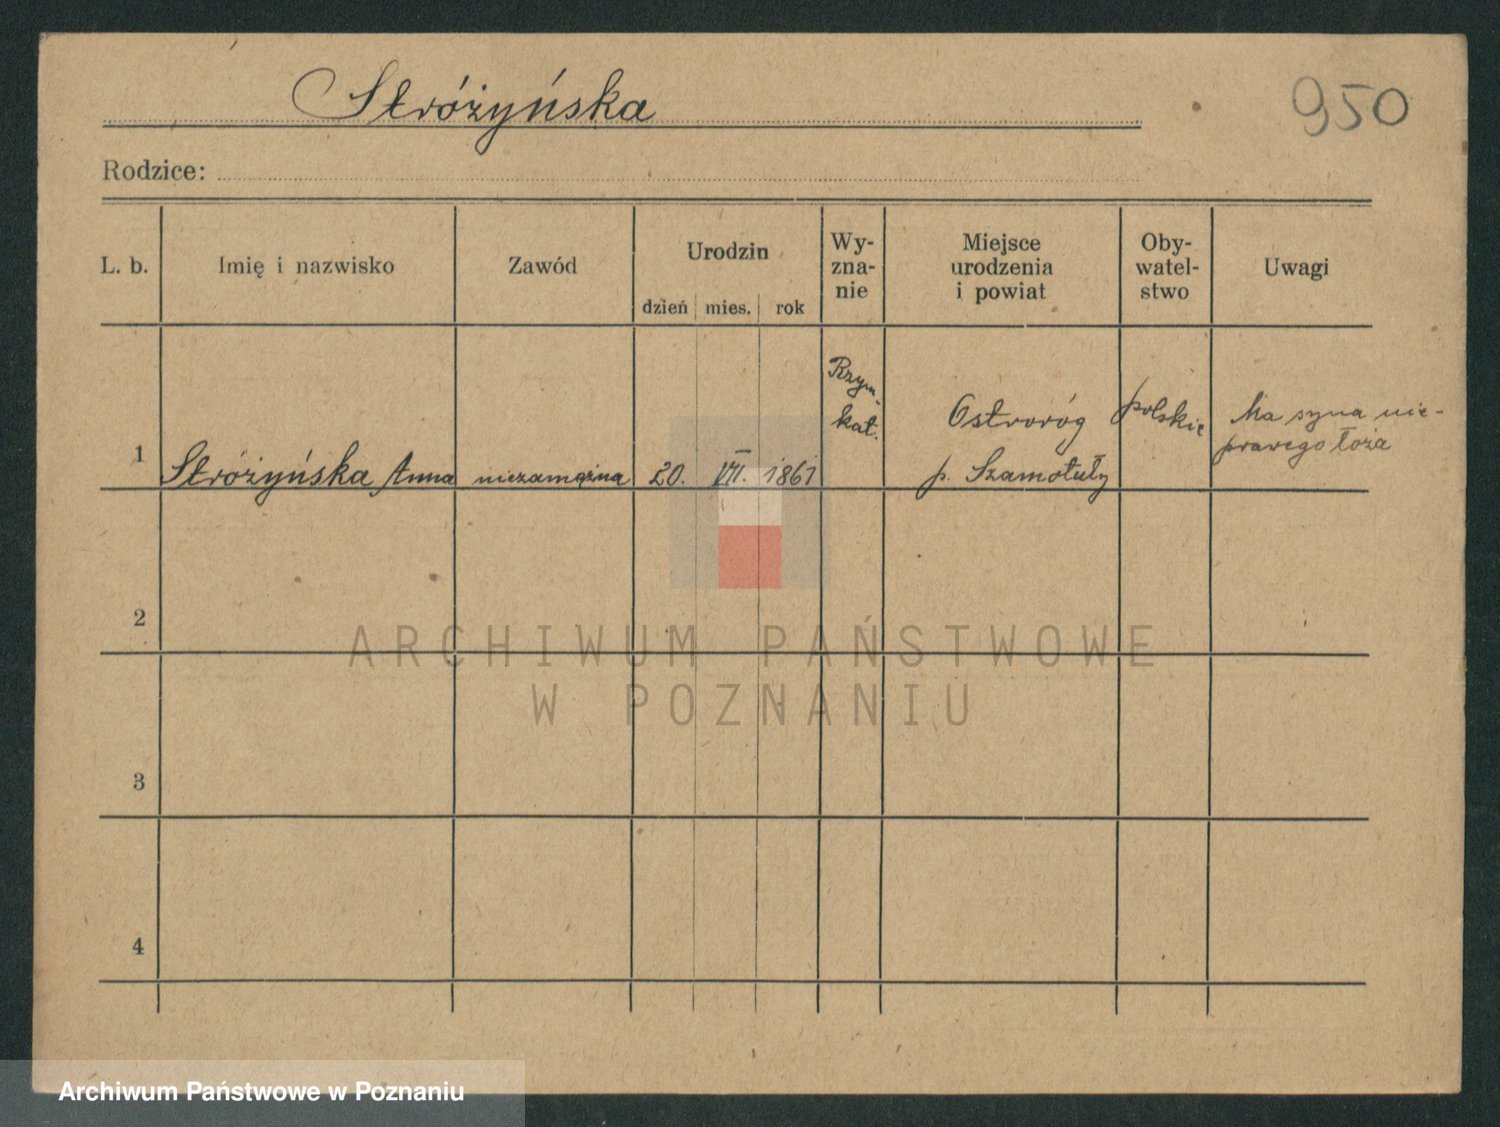 Stróżyńska
950
Rodzice:
L. b.
Imię i nazwisko
Zawód
Urodzin
dzień mies. rok
Wy-
zna-
nie
Miejsce
urodzenia
i powiat
Oby-
watel-
stwo
Uwagi
1
Stróżyńska Anna
niezamężna
20. VII. 1861
Rzym.-
kat.
Ostroróg
p. Szamotuły
polskie
Ma syna nie-
prawego łoża
2
3
4
ARCHIWUM PAŃSTWOWE
W POZNANIU
Archiwum Państwowe w Poznaniu